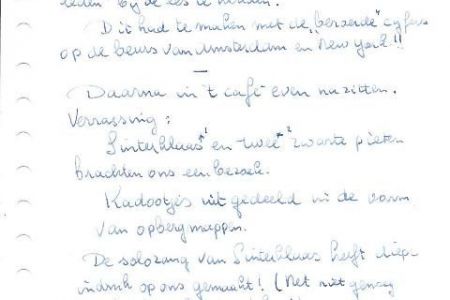 leden bij de les te houden.
Dit had te maken met de "beroerde" cijfers
op de beurs van Amsterdam en New York!!
—
Daarna in 't café even nazitten.
Verrassing:
Sinterklaas*¹ en twee*² zwarte pieten
brachten ons een bezoek.
Kadootjes uitgedeeld in de vorm
van opbergmappen.
De solozang van Sinterklaas heeft diepe
indruk op ons gemaakt! (Net niet genoeg